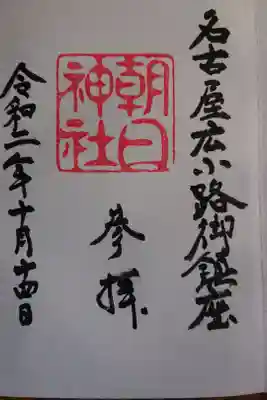 名古屋広小路御鎮座
朝日神社
参拝
令和二年十月十四日